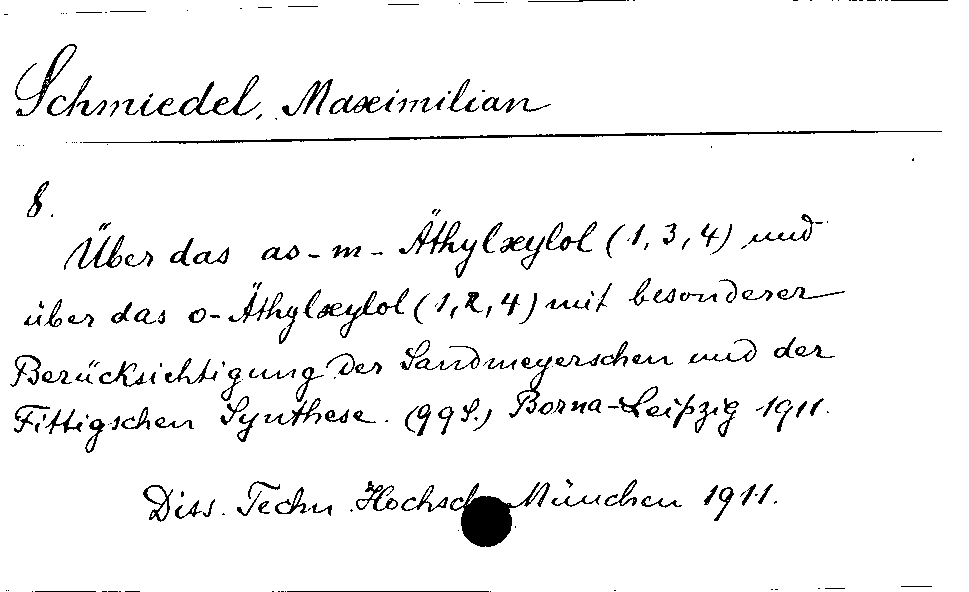 Schmiedel, Maximilian
8.
Über das as-m-Äthylxylol (1,3,4) und
über das o-Äthylxylol (1,2,4) mit besonderer
Berücksichtigung der Sandmeyerschen und der
Fittigschen Synthese. (99 S.) Borna-Leipzig 1911.
Diss. Techn. Hochsch. München 1911.